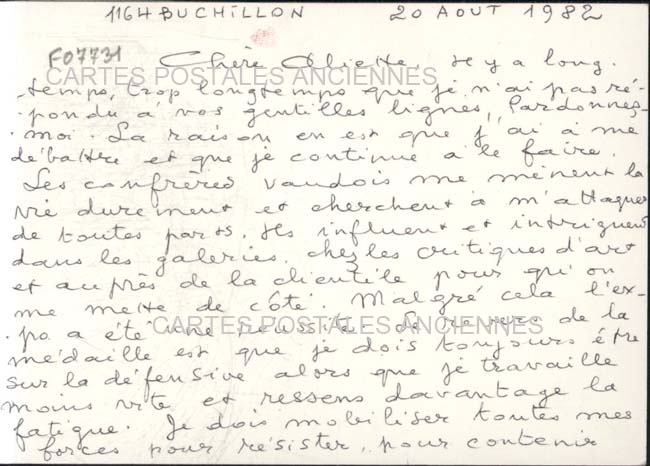 1164 BUCHILLON 20 AOUT 1982
F07731
Chère Aliette, Il y a long.
CARTES POSTALES ANCIENNES
temps, trop longtemps que je n'ai pas ré-
pondu à vos gentilles lignes, Pardonnez-
moi. La raison en est que j'ai à me
débattre et que je continue à le faire.
Les confrères vaudois me mènent la
vie durement et cherchent à m'attaquer
de toutes parts. Ils influent et intriguent
dans les galeries, chez les critiques d'art
et auprès de la clientèle pour qu'on
me mette de côté. Malgré cela l'ex-
po a été une réussite. Le revers de la
CARTES POSTALES ANCIENNES
médaille est que je dois toujours être
sur la défensive alors que je travaille
moins vite et ressens davantage la
fatigue. Je dois mobiliser toutes mes
forces pour résister, pour contenir